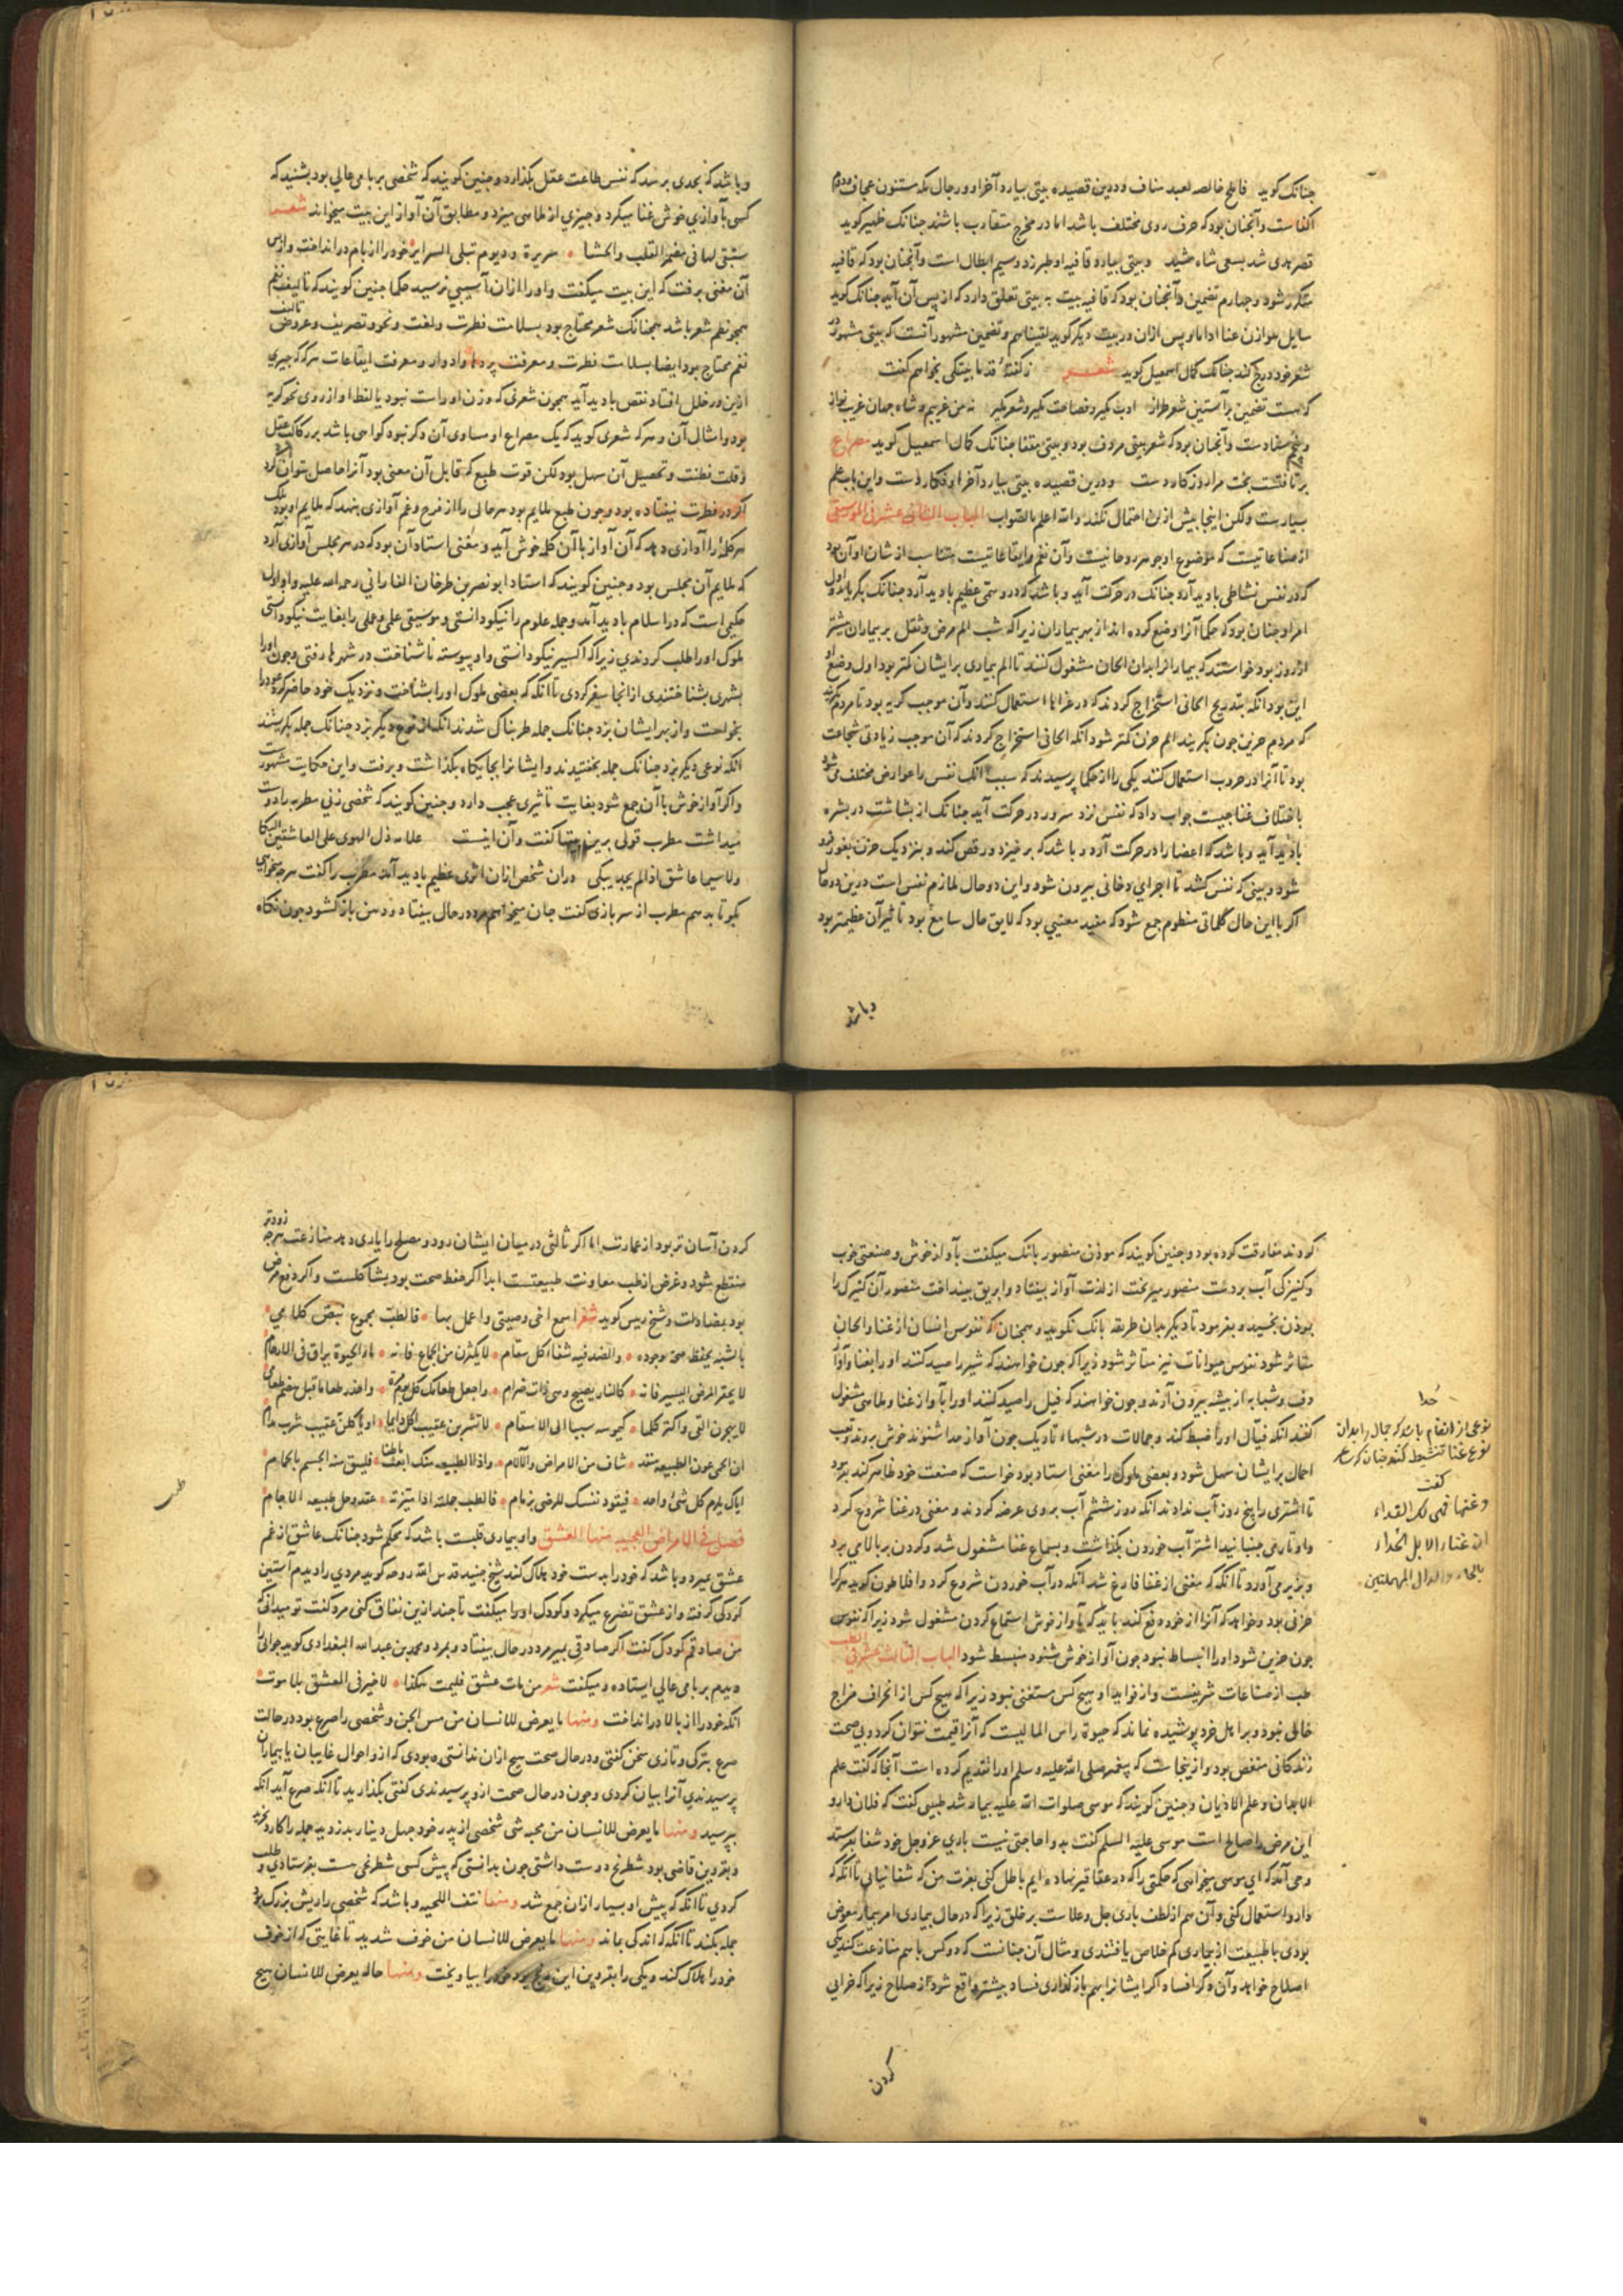 جنانک کوید فاطح خالصه لعبد مناف ودرین قصیده بیتی بیارد آخر او ورجال مکه مسنتون عجاف ودوم
اکفاست وآنجنان بود که حرف روی مختلف باشد اما در مخرج متقارب باشند جنانک ظهیر کوید
قصر هدی شد بسعی شاه مشید وبیتی بیارد قافیه او طبرزد وسیم ایطال است وآنجنان بود که قافیه
متکرر شود وجهارم تضمین وآنجنان بود که قافیه بیت به بیتی تعلق دارد که از پس آن آید جنانک کوید
سایل هوازن عنا اذا ما وپس ازان در بیت دیکر کوید لقیناهم وتضمین مشهور آنست که بیتی مشهور در
شعر خود درج کند جنانک کمال اسمعیل کوید شعر ز کفته قدما بیتکی بخواهم کفت
که هست تضمین بر آستین شعر طراز ادب مکیر وفصاحت مکیر وشعر مکیر نه من غریبم وشاه جهان غریب نواز
وپنجم سنادست وآنجنان بود که شعر بیتی مردف بود وبیتی متفا جنانک کمال اسمعیل کوید مصراع
برتافتست بخت مرا روزکار دست ودرین قصیده بیتی بیارد آخر او فکار دست واین باب علم
بسیارست ولکن اینجا بیش ازین احتمال نکند والله اعلم بالصواب الباب الثانی عشر فی الموسیقی
از صناعاتیست که موضوع او جوهر روحانیست وآن نغم وایقاعاتیست متناسب از شان او آن بود
که در نفس نشاطی بادید آرد جنانک در حرکت آید وباشد که درو سستی عظیم بادید آرد جنانک بکریاند واول
امر او جنان بود که حکما آنرا وضع کرده اند از بهر بیماران زیرا که شب الم مرض وثقل بر بیماران بیشتر
از روز بود خواستند که بیمارانرا بدان الحان مشغول کنند تا الم بیماری برایشان کمتر بود اول وضع او
این بود انکه بتدریج الحانی استخراج کردند که در عزاها استعمال کنند وآن موجب کریه بود تا مردم بکریند
که مردم حزین جون بکریند الم حزن کمتر شود انکه الحانی استخراج کردند که آن موجب زیادتی شجاعت
بود تا آنرا در حروب استعمال کنند یکی را از حکما پرسیدند که سبب انک نفس را عوارض مختلف می شود
باختلاف غنا جیست جواب داد که نفس نزد سرور در حرکت آید جنانک از بشاشت در بشره
بادید آید وباشد که اعضا را در حرکت آرد وباشد که برخیزد ورقص کند وبنزدیک حزن بغور فرو
شود وبینی که نفس کشد تا اجزای دخانی بیرون شود واین دو حال ملازم نفس است درین دو حال
اکر با این حال کلماتی منظوم جمع شود که مفید معنیی بود که لایق حال سامع بود تاثیر آن عظیمتر بود
وباشد
وباشد که بحدی برسد که نفس طاعت عقل بکذارد وجنین کویند که شخصی بر بامی عالی بود بشنید که
کسی بآوازی خوش غنا میکرد وجیزی از ملاهی میزد ومطابق آن آواز این بیت میخواند شعر
ستبقی لها فی مضمر القلب والحشا سریرة ود یوم تبلی السرایر خود را از بام در انداخت واز پس
آن مغنی برفت که این بیت میکفت واو را ازان آسیبی نرسید حکما جنین کویند که تالیف نغم
همجو نظم شعر باشد همجنانک شعر محتاج بود بسلامت فطرت ولغت ونحو وتصریف وعروض تالیف
نغم محتاج بود ایضا بسلامت فطرت ومعرفت پردها وادوار ومعرفت ایقاعات هر که که جیزی
ازین در خلل افتاد نقص بادید آید همجون شعری که وزن او راست نبود یا لفظ او از روی نحو کریه
بود وامثال آن وهر که شعری کوید که یک مصراع او مساوی آن دکر نبود کواهی باشد بر رکاکت عقل
وقلت فطنت وتحصیل آن سهل بود لکن قوت طبع که قابل آن معنی بود آنرا حاصل نتوان کرد
اکر در فطرت نیفتاده بود وجون طبع ملایم بود هر حالی را از فرح وغم آوازی بنهد که ملایم او بود بلک
هر کلمه را آوازی دهد که آن آواز با آن کلمه خوش آید ومغنی استاد آن بود که در هر مجلس آوازی آرد
که ملایم آن مجلس بود وجنین کویند که استاد ابو نصر بن طرخان الفارابی رحمه الله علیه واو اول
حکیمی است که در اسلام بادید آمد وجمله علوم را نیکو دانستی وموسیقی علمی وعملی را بغایت نیکو دانستی
ملوک او را طلب کردندی زیرا که اکسیر نیکو دانستی واو پیوسته ناشناخت در شهرها رفتی وجون او را
بشهری بشناختندی از انجا سفر کردی تا انکه که بعضی ملوک او را بشناخت ونزدیک خود حاضر کرد وعود را
بخواست واز بهر ایشان بزد جنانک جمله طربناک شدند انک از نوع دیکر بزد جنانک جمله بکریستند
انکه نوعی دیکر بزد جنانک جمله بخفتیدند وایشانرا بجایکاه بکذاشت وبرفت واین حکایت مشهورست
واکر آواز خوش با آن جمع شود بغایت تاثیری عجب دارد وجنین کویند که شخصی زنی مطربه را دوست
میداشت مطرب قولی برین بیتها کفت وآن اینست علامه ذل الهوی علی العاشقین البکا
ولا سیما عاشق اذا لم یجد یبکی دران شخص ازان اثری عظیم بادید آمد مطرب را کفت هرجه میخواهی
بکو تا بدهم مطرب از سر بازی کفت جان میخواهم مرد در حال بیفتاد ودهن باز کشود جون نکاه
کردند مفارقت کرده بود وجنین کویند که موذن منصور بانک میکفت بآواز خوش وصنعتی خوب
وکنیزکی آب بر دست منصور میریخت از لذت آواز بیفتاد وابریق بینداخت منصور آن کنیزک را
بموذن بخشید وبفرمود تا دیکر بدان طریقه بانک نکوید وهمجنان که نفوس انسان از غنا والحان
متاثر شود نفوس حیوانات نیز متاثر شود زیرا که جون خواهند که شیر را صید کنند او را بغنا وآواز
دف وشبابه از بیشه بیرون آرند وجون خواهند که فیل را صید کنند او را بآواز غنا وملاهی مشغول
کنند انکه فیالی او را ضبط کند وجمالات در شبهاء تاریک جون آواز حدا شنوند خوش بروند وتعب
احمال برایشان سهل شود وبعضی ملوک را مغنی استاد بود خواست که صنعت خود ظاهر کند بفرمود
تا اشتری را پنج روز آب ندادند انکه روز ششم آب بروی عرضه کردند ومغنی در غنا شروع کرد
واوتار می جنبانید اشتر آب خوردن بکذاشت وبسماع غنا مشغول شد وکردن بر بالا می برد
وبزیر می آورد تا انکه که مغنی از غنا فارغ شد انکه در آب خوردن شروع کرد وافلاطون کوید هرکرا
حزنی بود وخواهد که آنرا از خود دفع کند باید که بآواز خوش استماع کردن مشغول شود زیرا که نفوس
جون حزین شود او را انبساط نبود جون آواز خوش شنود منبسط شود الباب الثالث عشر فی الطب
طب از صناعات شریفست واز فواید او هیج کس مستغنی نبود زیرا که هیج کس از انحراف مزاج
خالی نبود وبر اهل خرد پوشیده نماند که حیوة راس المالیست که آنرا قیمت نتوان کرد وبی صحت
زندکانی منغص بود واز ینجاست که پیغمبر صلی الله علیه وسلم او را تقدیم کرده است آنجا که کفت علم
الابدان وعلم الادیان وجنین کویند که موسی صلوات الله علیه بیمار شد طبیبی کفت که فلان دارو
این مرض را صالح است موسی علیه السلم کفت بدوا حاجتی نیست باری عز وجل خود شفا بفرستد
وحی آمد که ای موسی میخواهی که حکمتی را که در عقاقیر نهاده ایم باطل کنی بعزت من که شفا نیابی تا انکه که
دارو استعمال کنی وآن هم از لطف باری جل وعلاست بر خلق زیرا که در حال بیماری امر بیمار مفوض
بودی با طبیعت از بیماری کم خلاص یافتندی ومثال آن جنانست که دو کس با هم منازعت کنند یکی
اصلاح خواهد وآن دکر افساد اکر ایشانرا بهم باز کذاری فساد بیشتر واقع شود از صلاح زیرا که خرابی
کردن
حدا
نوعی از انغام باشد که جمال را بدان
نوع غنا تنشیط کنند جنان که شاعر
کفت
وغنها فهی لک الفداء
ان غناء الابل الحداء
بالحاء والدال المهملتین
کردن آسان تر بود از عمارت اما اکر ثالثی در میان ایشان رود ومصلح را یاری دهد منازعت هرجه زودتر
منقطع شود وغرض از طب معاونت طبیعتست ابدا اکر حفظ صحت بود بمشاکلت واکر دفع مرض
بود بمضادت وشیخ رییس کوید شعر اسمع اخی وصیتی واعمل بها فالطب مجموع بنص کلامی
بالشبه یحفظ صحة وجوده والضد فیه شفاء کل سقام لا یکثرن من الجماع فانه ماء الحیوة یراق فی الارحام
لا یحقر المرض الیسیر فانه کالنار یصبح وهی ذات ضرام واجعل طعامک کل یوم مرة واحذر طعاما قبل هضم طعام
لا یهجرن القی واکثر کلما کیموسه سببا الی الاسقام لا تشربن عقیب اکل دایما او یاکلن عقیب شرب مدام
ان الحمی عون الطبیعه مسعد شاف من الامراض والآلام
ایاک یلزم کل شیء واحد فیقود نفسک للرضی بزمام فالطب جملته اذا میزته عقد وحل طبیعه الاجسام
فصل فی الامراض العجیبه منها العشق واو بیماری قلبست باشد که محکم شود جنانک عاشق از غم
عشق بمیرد وباشد که خود را بدست خود هلاک کند شیخ جنید قدس الله روحه کوید مردی را دیدم آستین
کودکی کرفته واز عشق تضرع میکرد وکودک او را میکفت تا جند ازین نفاق کنی مرد کفت تو میدانی که
من صادقم کودک کفت اکر صادقی بمیر مرد در حال بیفتاد وبمرد ومحمد بن عبد الله البغدادی کوید جوانی را
دیدم بر بامی عالی ایستاده ومیکفت شعر من مات عشق فلیمت هکذا لا خیر فی العشق بلا موت
انکه خود را از بالا در انداخت ومنها ما یعرض للانسان من مس الجن وشخصی را صرع بود در حالت
صرع بترکی وتازی سخن کفتی ودر حال صحت هیج ازان ندانستی بودی که از واحوال غایبان یا بیماران
پرسیدندی آنرا بیان کردی وجون در حال صحت ازو پرسیدندی کفتی بکذارید تا انکه صرع آید انکه
بپرسید ومنها ما یعرض للانسان من محبه شی شخصی از پدر خود جهل دینار بدزدید جمله را کارد بخرید
وبقزوین قاضی بود شطرنج دوست داشتی جون بدانستی که پیش کسی شطرنجی هست بفرستادی وطلب
کردی تا انکه که پیش او بسیار ازان جمع شد ومنها نتف اللحیه وباشد که شخصی را ریش بزرک بود
جمله بکند تا انکه که اندکی بماند ومنها ما یعرض للانسان من خوف شدید تا غایتی که از خوف
خود را هلاک کند ویکی را بقزوین این بود خود را بیاویخت ومنها حاله یعرض للانسان هیج